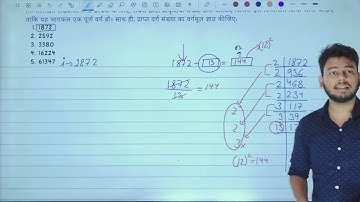 ताकि यह भागफल एक पूर्ण वर्ग हो। साथ ही, प्राप्त वर्ग संख्या का वर्गमूल ज्ञात कीजिए।
1. 1872
2. 2592
3. 3380
4. 16224
5. 61347
i⇒1872
1872 ÷ 13 = 144
(12)²
1872/13 = 144
2
2
3
(12)² = 144
2 1872
2 936
2 468
2 234
3 117
3 39
13